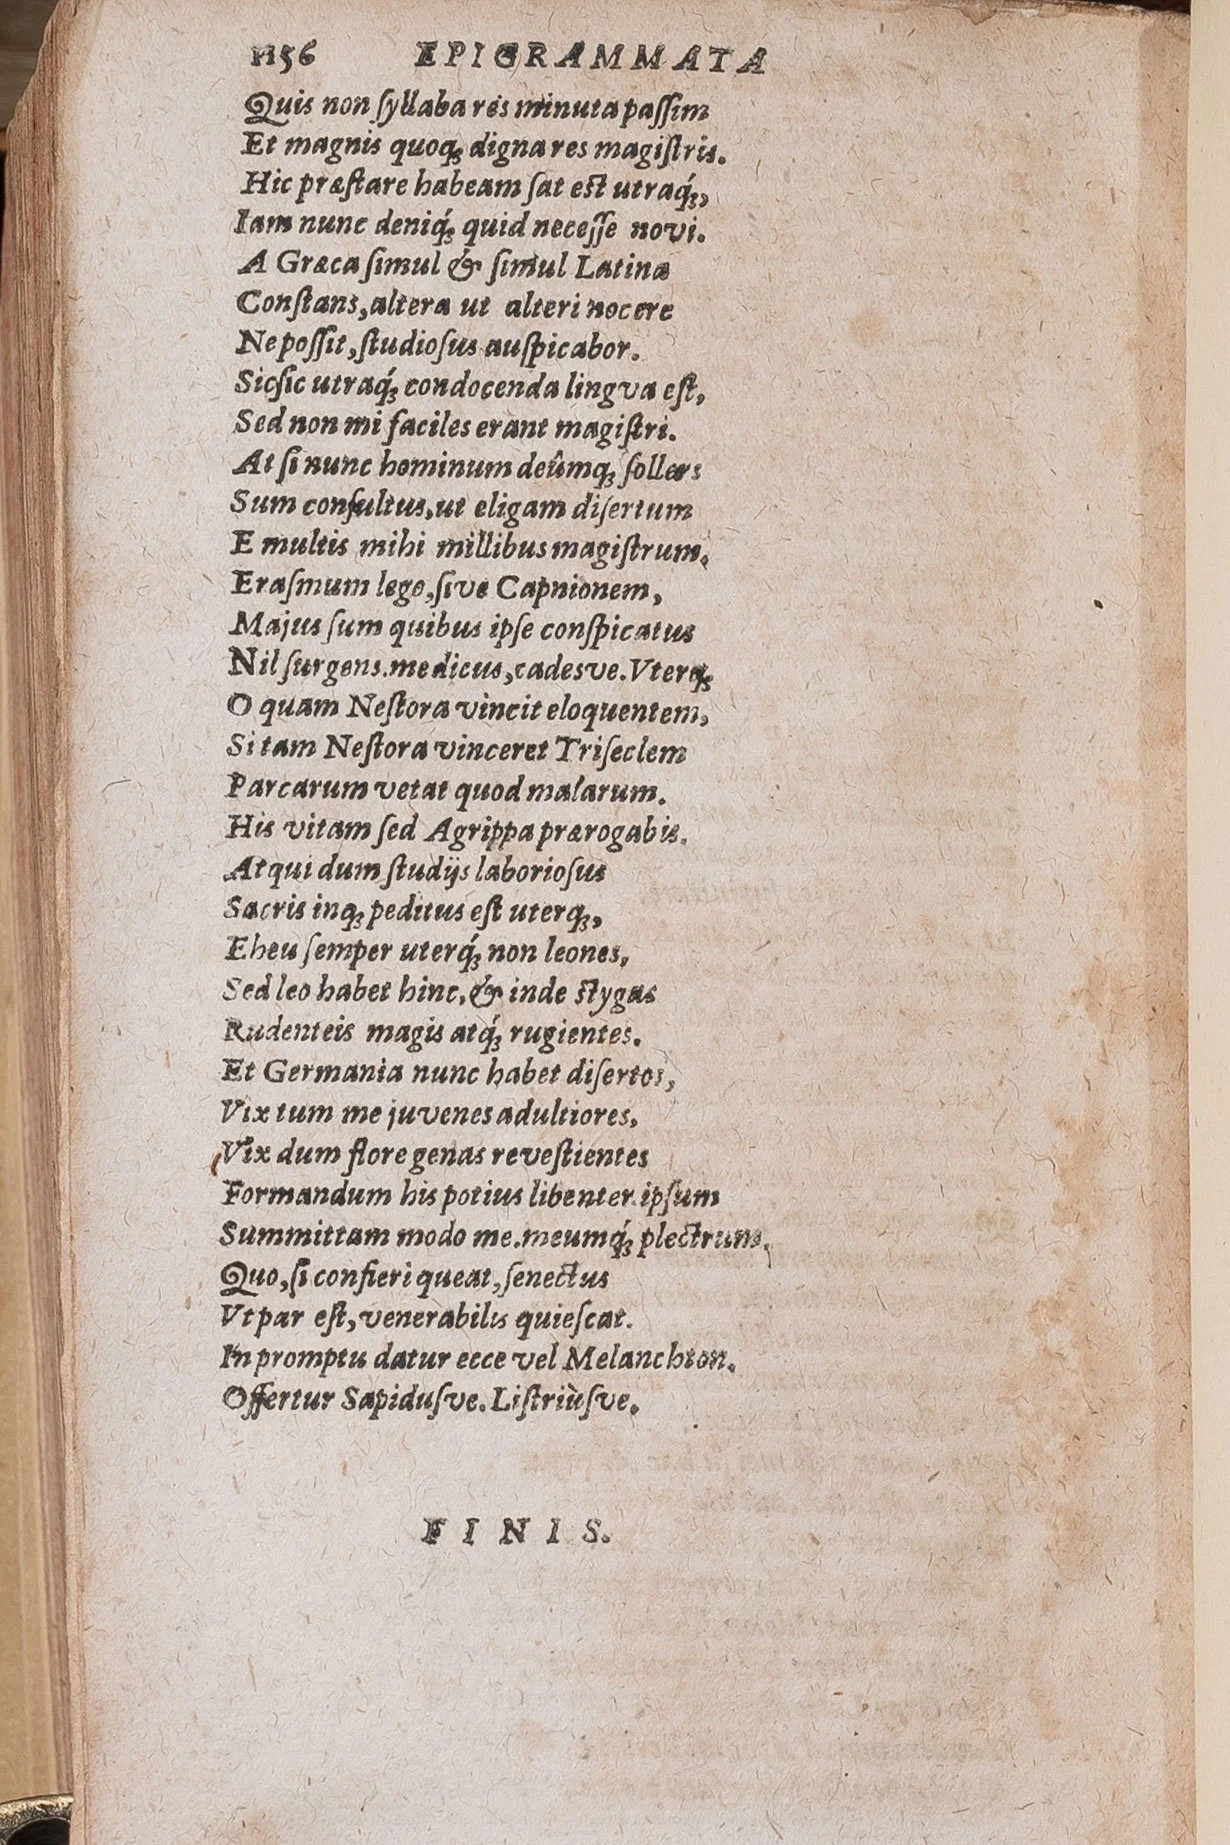 1156 EPIGRAMMATA
Quis non syllaba res minuta passim
Et magnis quoqꝫ digna res magistris.
Hic præstare habeam sat est utraqꝫ́,
Iam nunc deniqꝫ́ quid necesse novi.
A Græca simul & simul Latina
Constans, altera ut alteri nocere
Ne possit, studiosus auspicabor.
Sic sic utraqꝫ́ condocenda lingva est,
Sed non mi faciles erant magistri.
At si nunc hominum deûmqꝫ sollers
Sum consultus, ut eligam disertum
E multis mihi millibus magistrum,
Erasmum lego, sive Capnionem,
Majus sum quibus ipse conspicatus
Nil surgens. medicus, cadesve. Vterqꝫ
O quam Nestora vincit eloquentem,
Si tam Nestora vinceret Triseclem
Parcarum vetat quod malarum.
His vitam sed Agrippa prærogabis.
Atqui dum studijs laboriosus
Sacris inqꝫ peditus est uterqꝫ,
Eheu semper uterqꝫ́ non leones,
Sed leo habet hinc, & inde stygas
Rudenteis magis atqꝫ́ rugientes.
Et Germania nunc habet disertos,
Vix tum me juvenes adultiores,
Vix dum flore genas revestientes
Formandum his potius libenter ipsum
Summittam modo me. meumqꝫ́ plectrum,
Quo, si confieri queat, senectus
Vt par est, venerabilis quiescat.
In promptu datur ecce vel Melanchton.
Offertur Sapidusve. Listriùsve.
FINIS.